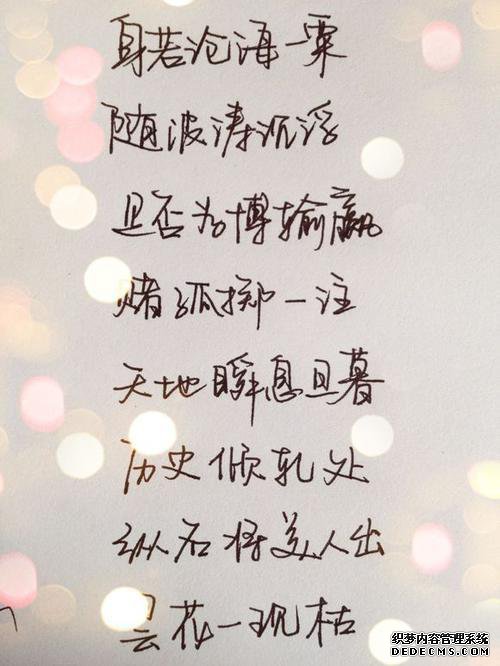 身若沧海一粟
随波涛沉浮
是否为博输赢
赌孤掷一注
天地瞬息旦暮
历史倾轧处
纵名将美人出
昙花一现枯
织梦内容管理系统
DEDECMS.COM